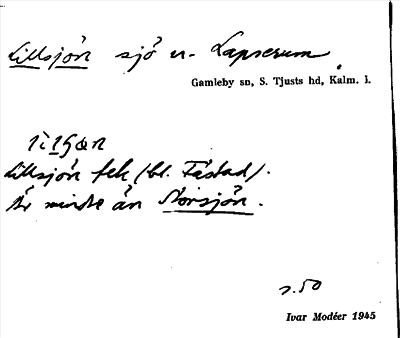 Lillsjön sjö n. Lapserum.
Gamleby sn, S. Tjusts hd, Kalm. l.
Lillsjön fek (bl. Fästad).
Är mindre än Storsjön.
s. 50
Ivar Modéer 1945